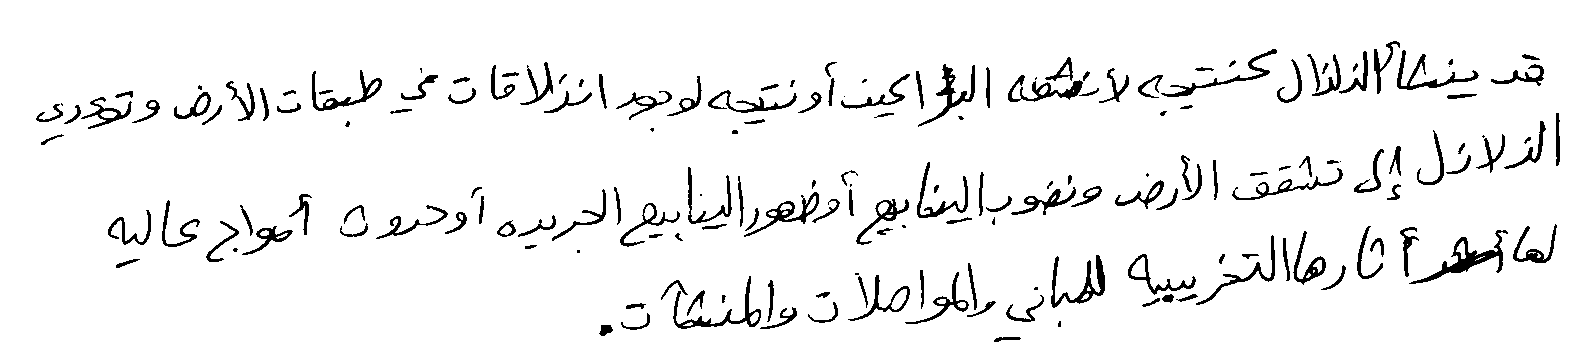 قد ينشأ الزلزال كنتيجه لأنشطه البراكين أو نتيجه لوجود انزلاقات في طبقات الأرض وتؤدي
الزلازل إلى تشقق الأرض ونضوب الينابيع أو ظهور الينابيع الجديده أو حدوث أمواج عاليه
لها أثارها التخريبيه للمباني والمواصلات والمنشآت.